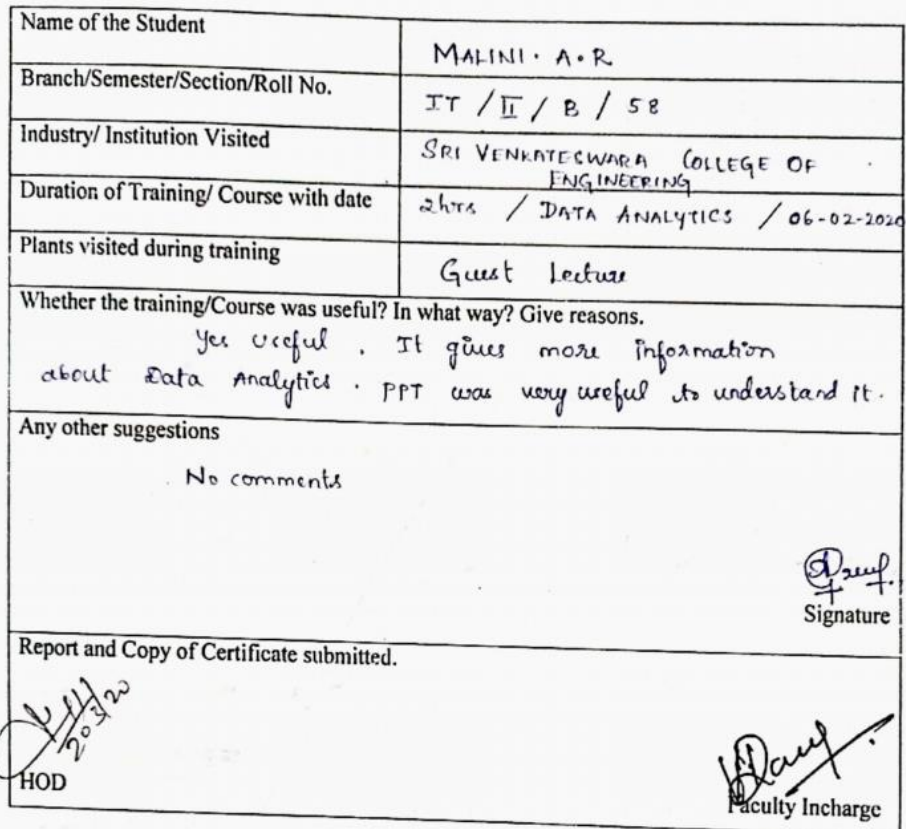 Name of the Student
MALINI. A.R
Branch/Semester/Section/Roll No.
IT / II / B / 58
Industry/ Institution Visited
SRI VENKATESWARA COLLEGE OF
ENGINEERING
Duration of Training/ Course with date
2hrs / DATA ANALYTICS / 06-02-2020
Plants visited during training
Guest Lecture
Whether the training/Course was useful? In what way? Give reasons.
Yes useful. It gives more information
about Data Analytics. PPT was very useful to understand it.
Any other suggestions
No comments
Signature
Report and Copy of Certificate submitted.
HOD
Faculty Incharge